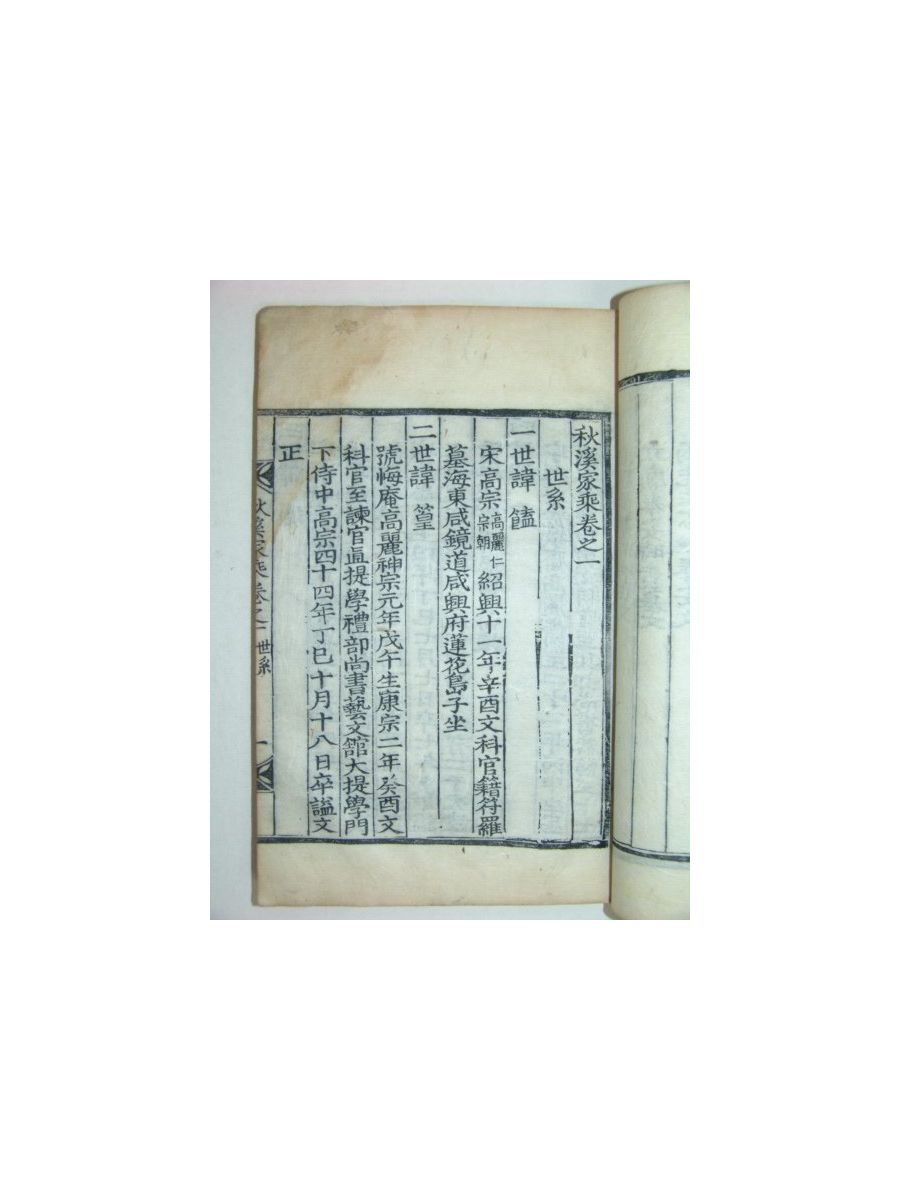 秋溪家乘卷之一
世系
一世諱 饁
宋高宗高麗仁宗朝紹興十一年辛酉文科官籍符羅
墓海東咸鏡道咸興府蓮花島子坐
二世諱 篁
號悔庵高麗神宗元年戊午生康宗二年癸酉文
科官至諫官直提學禮部尚書藝文館大提學門
下侍中高宗四十四年丁巳十月十八日卒謚文
正
秋溪家乘卷之一 世系 一